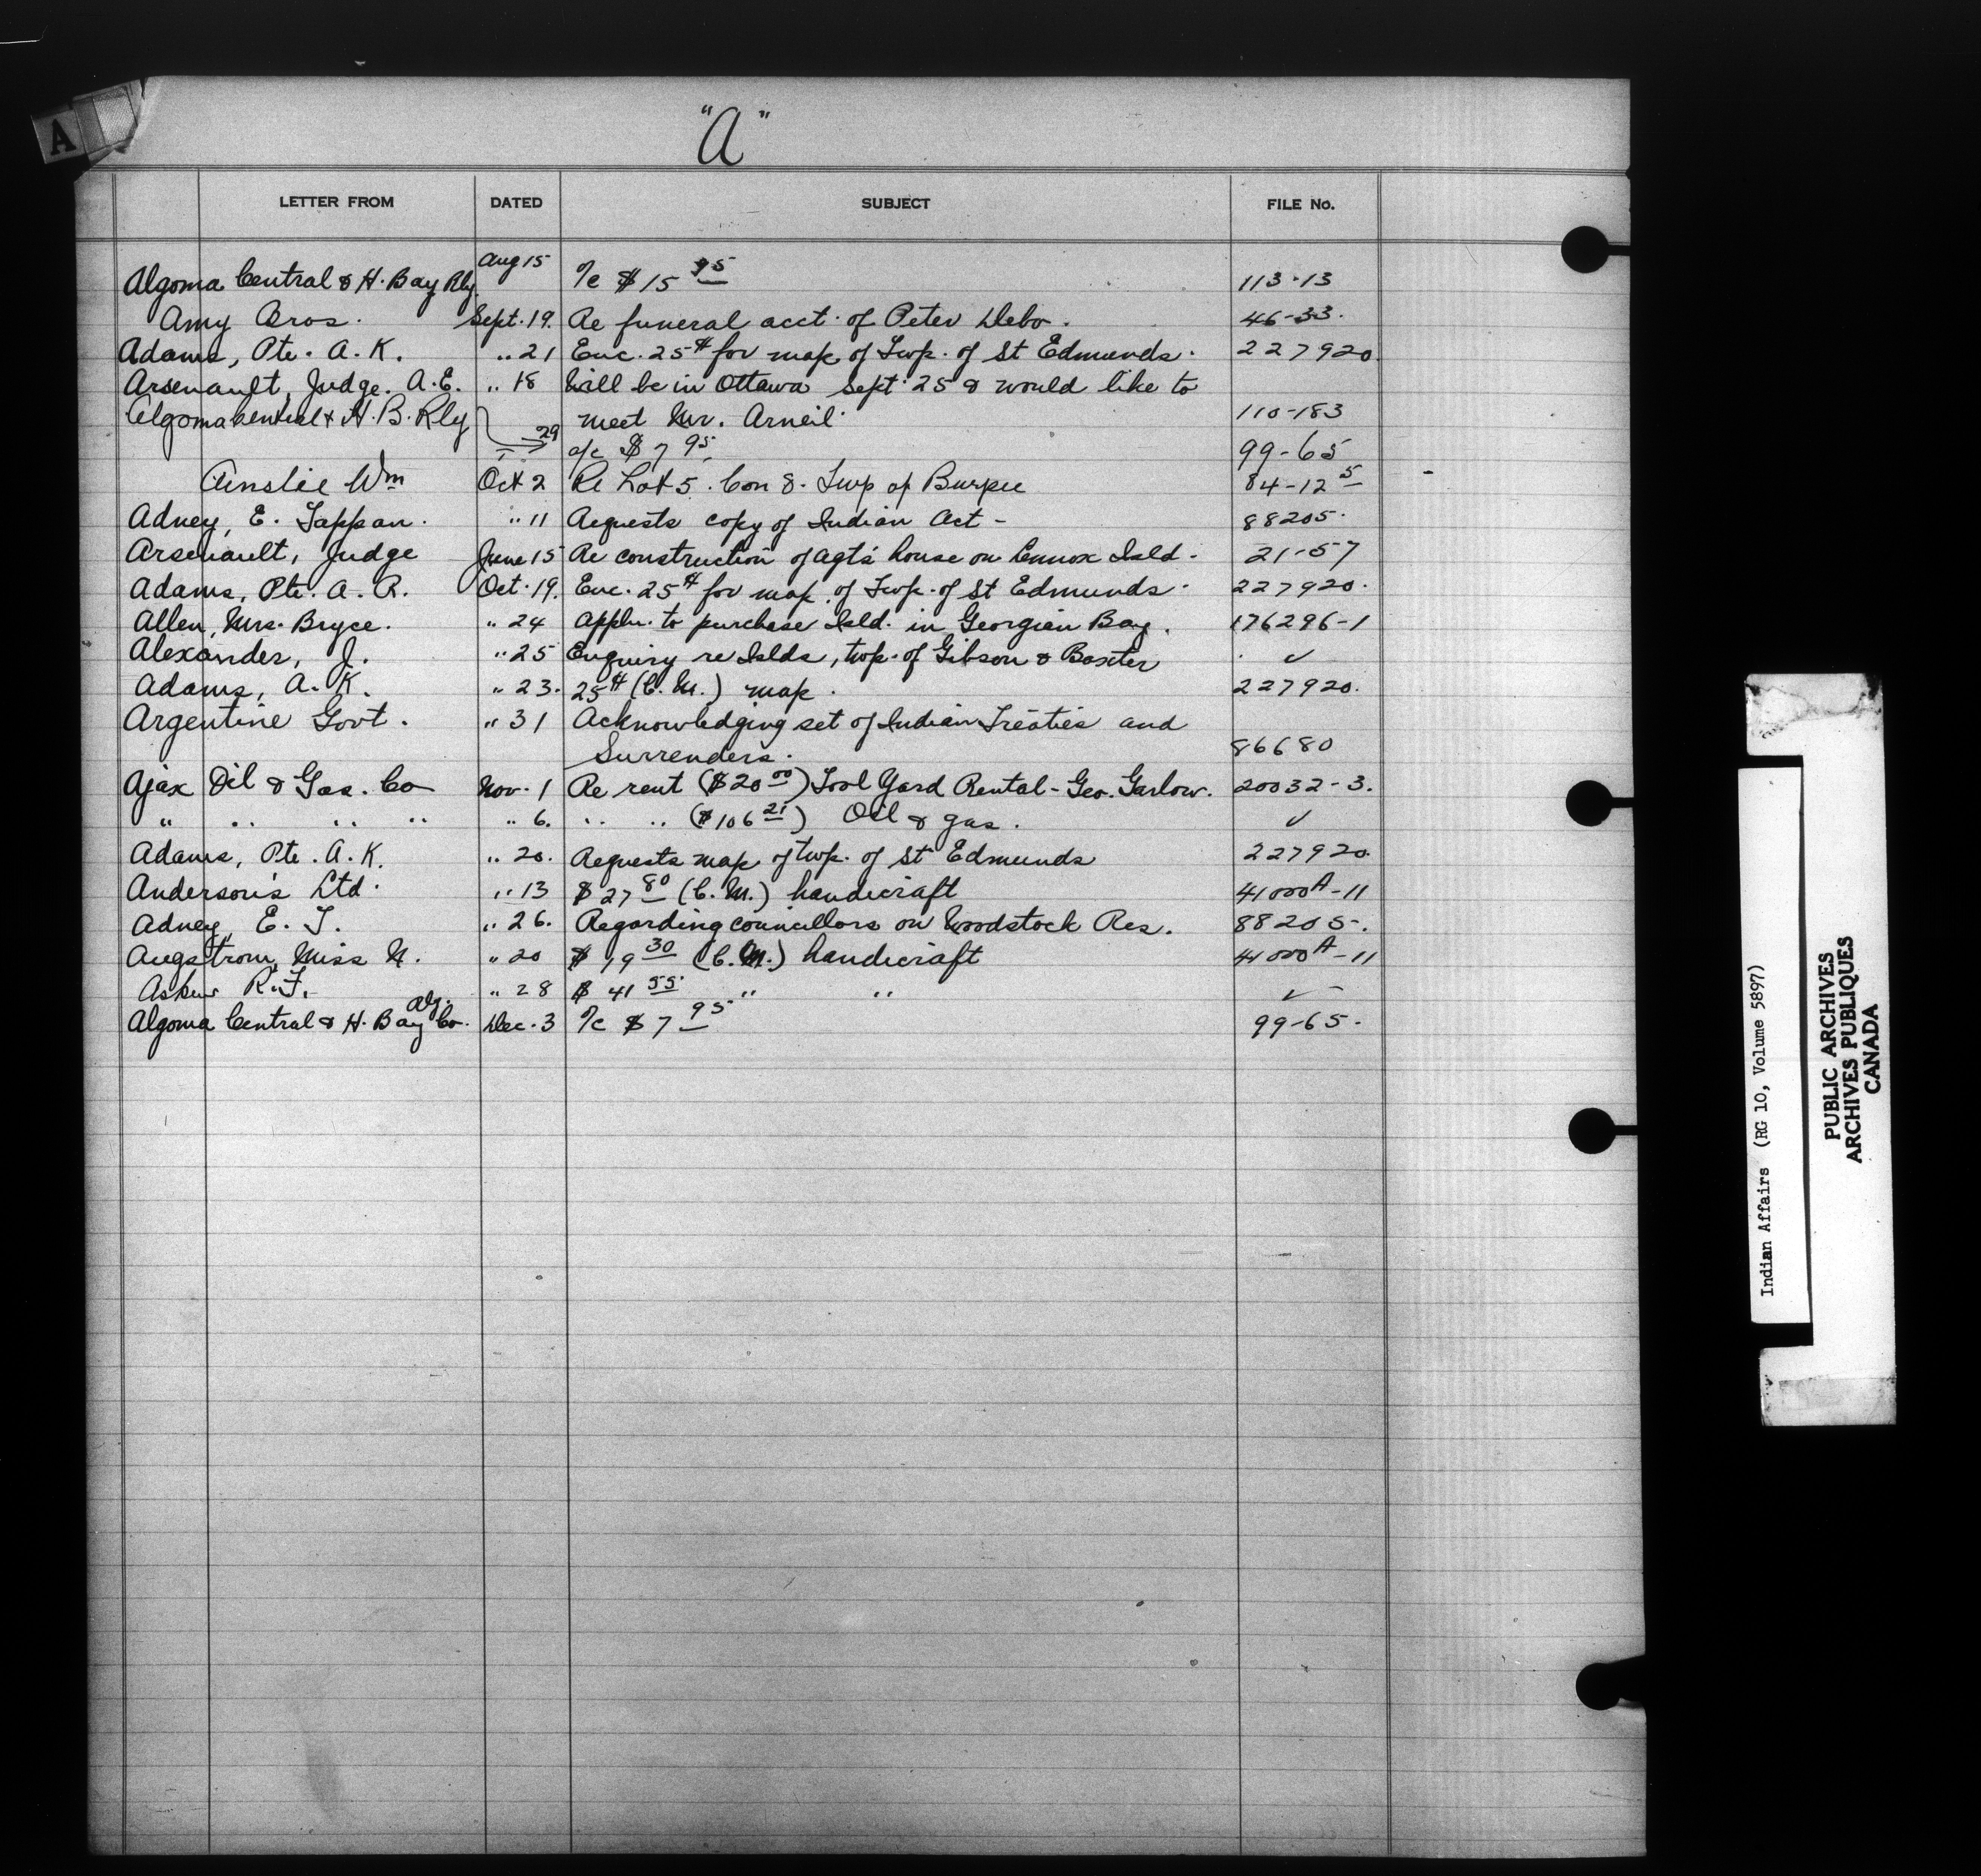 A
"A"
LETTER FROM DATED SUBJECT FILE No.
Algoma Central & H. Bay Rly. Aug 15 o/c $15 95 113-13
Amy Bros. Sept. 19. Re funeral acct. of Peter Debo. 46-33.
Adams, Pte. A. K. " 21 Enc. 25¢ for map of Twp. of St Edmunds. 227920
Arsenault, Judge. A. E. " 18 Will be in Ottawa Sept. 25 & would like to
meet Mr. Arneil. 110-183
Algoma Central & H. B. Rly 29 a/c $7 95 99-65
Ainslie Wm Oct 2 Re Lot 5. Con 8. Twp of Burpee 84-12 5
Adney, E. Tappan. " 11 Requests copy of Indian Act - 88205.
Arsenault, Judge June 15 Re construction of agt's house on Lennox Isld. 21-57
Adams, Pte. A. R. Oct. 19. Enc. 25¢ for map of Twp. of St Edmunds. 227920.
Allen, Mrs. Bryce. " 24 Appln. to purchase Isld. in Georgian Bay. 176296-1
Alexander, J. " 25 Enquiry re Islds, twp. of Gibson & Baxter ✓
Adams, A. K. " 23. 25¢ (C. M.) map. 227920.
Argentine Govt. " 31 Acknowledging set of Indian Treaties and
Surrenders. 86680
Ajax Oil & Gas. Co Nov. 1 Re rent ($20 00) Tool Yard Rental - Geo. Garlow. 20032-3.
" " " " " 6. " " ($106 21) Oil & gas. ✓
Adams, Pte. A. K. " 20. Requests map of twp. of St Edmunds 227920.
Anderson's Ltd. " 13 $27 80 (C. M.) handicraft 41000A-11
Adney, E. T. " 26. Regarding councillors on Woodstock Res. 88205.
Angstrom, Miss N. " 20 $19 30 (C. M.) handicraft 41000A-11
Askew R. F. " 28 $41 55 " " ✓
Algoma Central & H. Bay Rly. Co. Dec. 3 o/c $7 95 99-65.
Indian Affairs (RG 10, Volume 5897)
PUBLIC ARCHIVES
ARCHIVES PUBLIQUES
CANADA